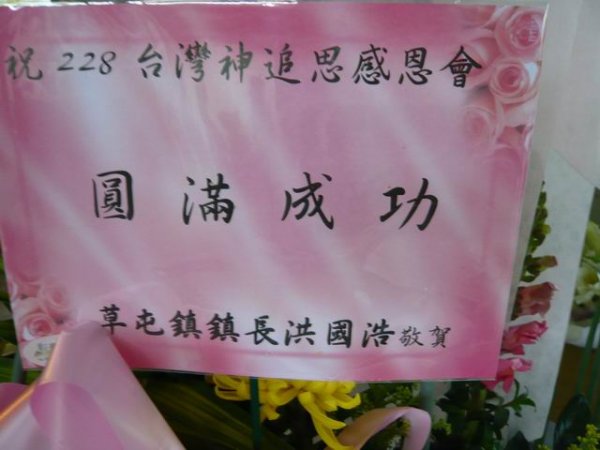 祝228台灣神追思感恩會
圓滿成功
草屯鎮鎮長洪國浩敬賀